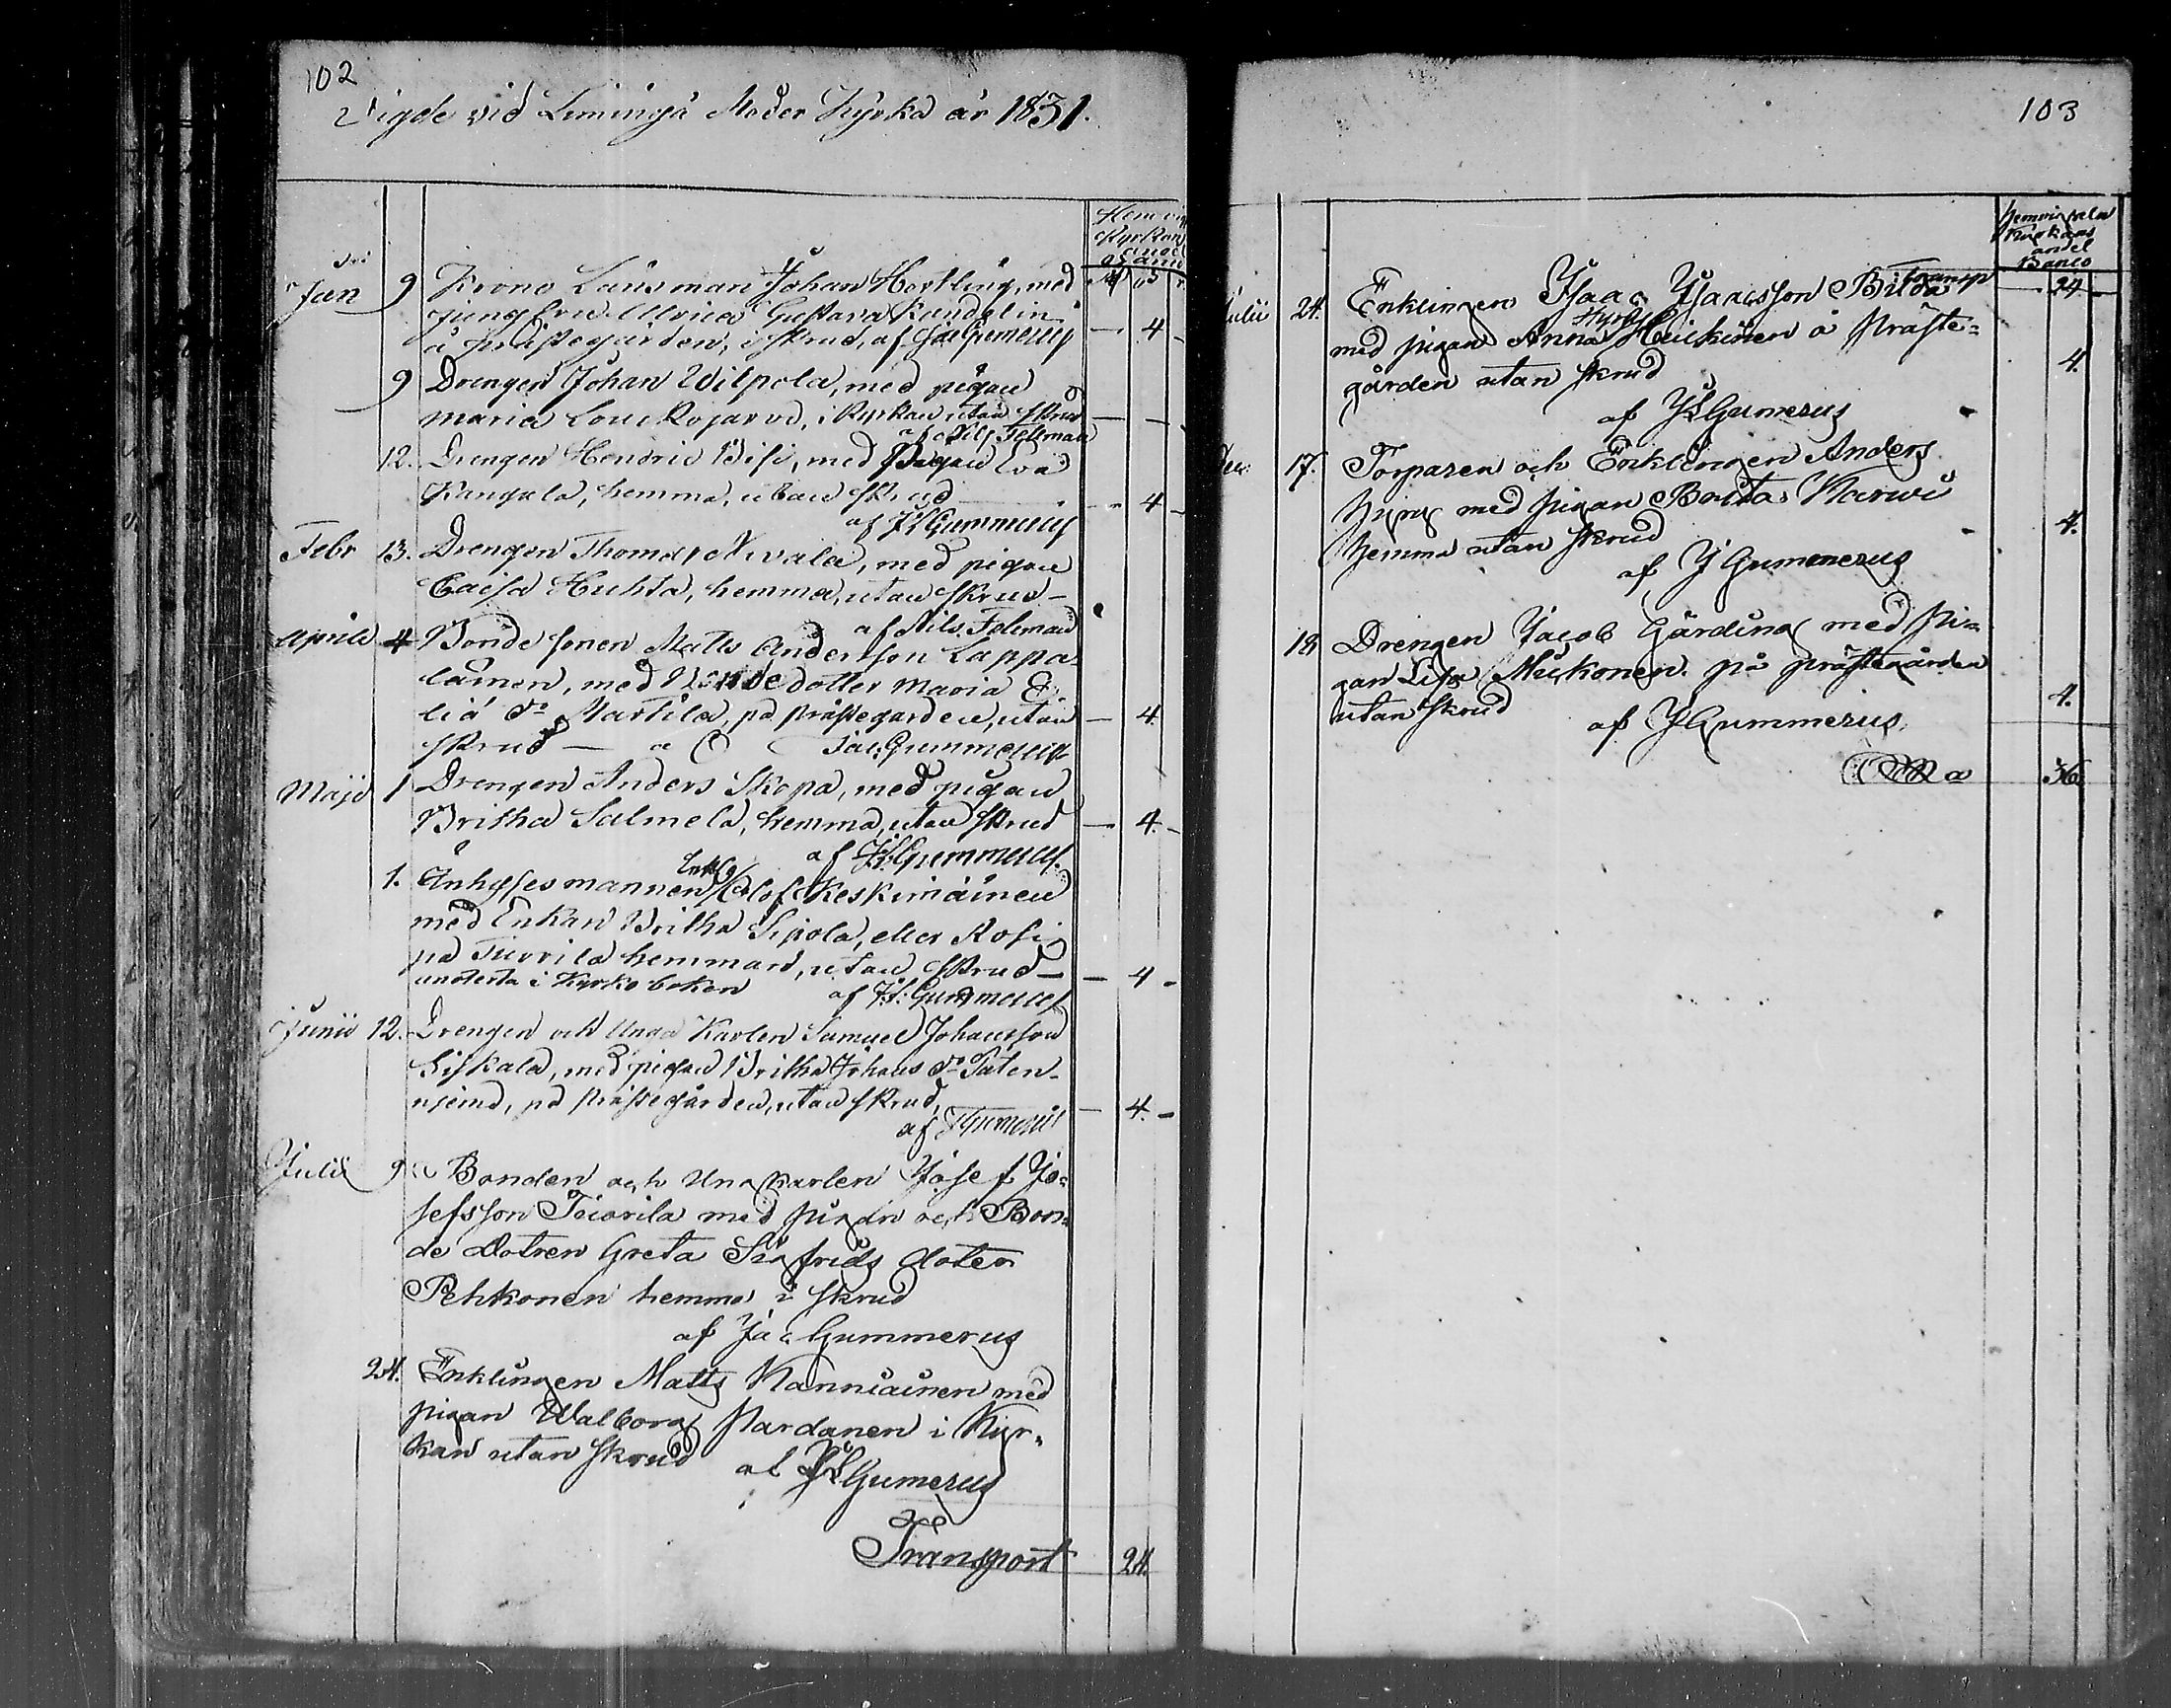 102
Vigde vid Limingå Moder Kyrka år 1831.
Jan 9 Krono Länsman Johan Hortling, med
jungfru Ulrica Gustava Kandelin
å prästegården, i skrud, af Jac Gumerus — 4 –
9 Drengen Johan Wilpola, med pigan
Maria Loukojarvi, i Kyrkan, utan skrud — — –
af Nils Feleman
12. Drengen Hendric Bisi, med Pigan Eva
Kangala, hemma, utan skrud — 4 –
af J Gummerus
Febr 13. Drengen Thomas Nivala, med pigan
Caisa Huhta, hemma, utan skrud –
af Nils Feleman
Aprill 4 Bonde sonen Matts Andersson Lappa-
lainen, med Bonde dotter Maria E-
liæ dr Martila, på prästegården, utan — 4.
skrud — Jac. Gummerus
Maji 1 Drengen Anders Skopa, med pigan
Britha Salmela, hemma, utan skrud — 4. –
af J. Gummerus.
1. Inhysesmannen Enkl. Olof Keskimäinen
med Enkan Britha Sipola, eller Rosi
på Tuorila hemman, utan skrud — — 4 –
i Kyrkoboken af J. Gummerus
Junii 12. Drengen och Unga Karlen Samuel Johansson
Siskala, med pigan Britha Johans dr
på prästegården, utan skrud, — 4. –
af J Gumerus
Julii 9 Bonden och Ungkarlen Josef Jo-
sefsson Teiorila med pigan och Bon-
de Dotren Greta Sigfrids doter
Pehkonen hemma i skrud
af Jac Gummerus
24. Enklingen Matts Kanniainen med
pigan Walborg Pardanen i Kyr-
kan utan skrud af J Gumerus
Transport 24.
103
Hemvigseln
Kyrkans
andel
Banco
transp 24
Julii 24. Enklingen Isaac Isacsson Bilda
med pigan Anna Heickinen å Präste-
gården utan skrud 4.
af J Gumerus
Dec. 17. Torparen och Enklingen Anders
Hyry med pigan Brita Karwi
hemma utan skrud 4.
af J Gummerus
18 Drengen Jacob Gårding med Pi-
gan Lisa Mickonen på prästegården
utan skrud 4.
af J Gummerus.
36